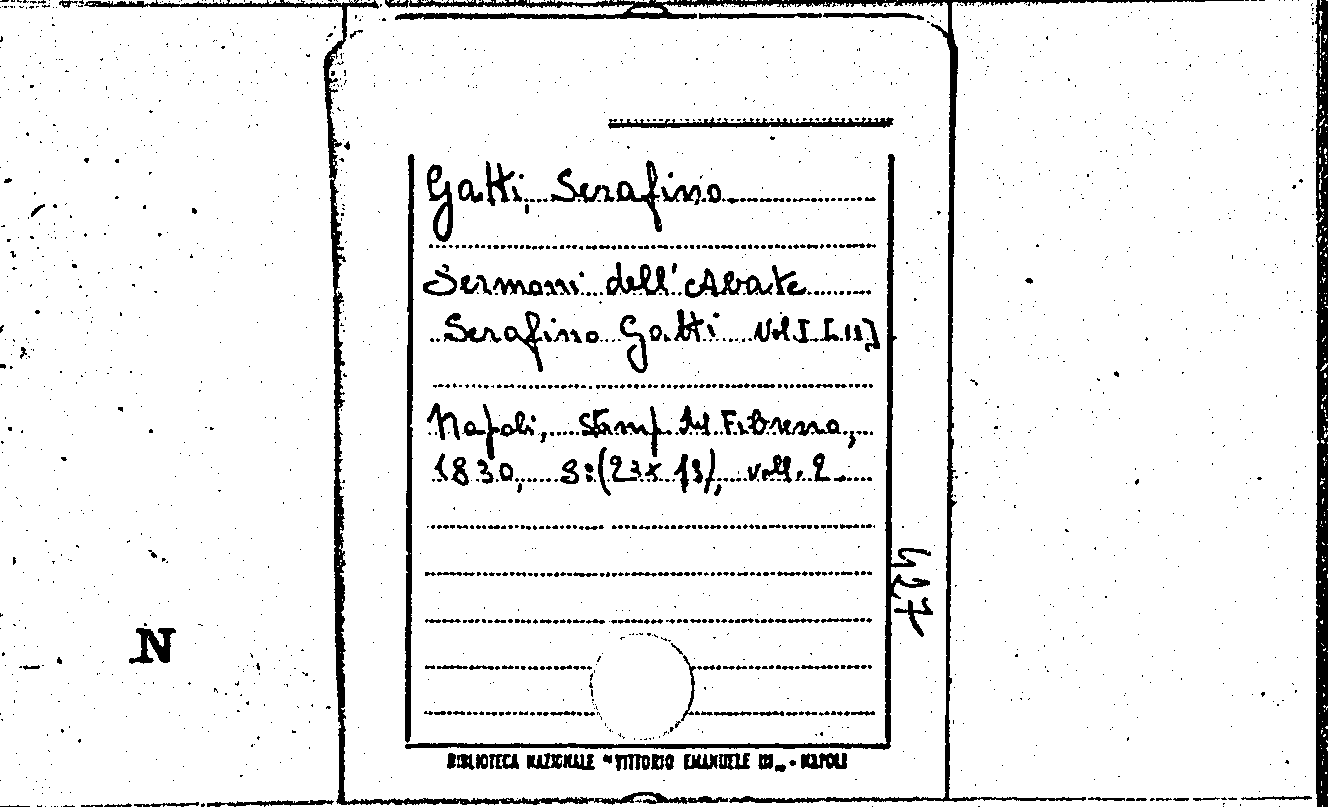 Gatti, Serafino.
Sermoni dell'Abate
Serafino Gatti Vol. I [-II]
Napoli, Stamp. del Fibreno,
1830, 8:(23x13), voll. 2.
427
N
BIBLIOTECA NAZIONALE "VITTORIO EMANUELE III„ - NAPOLI